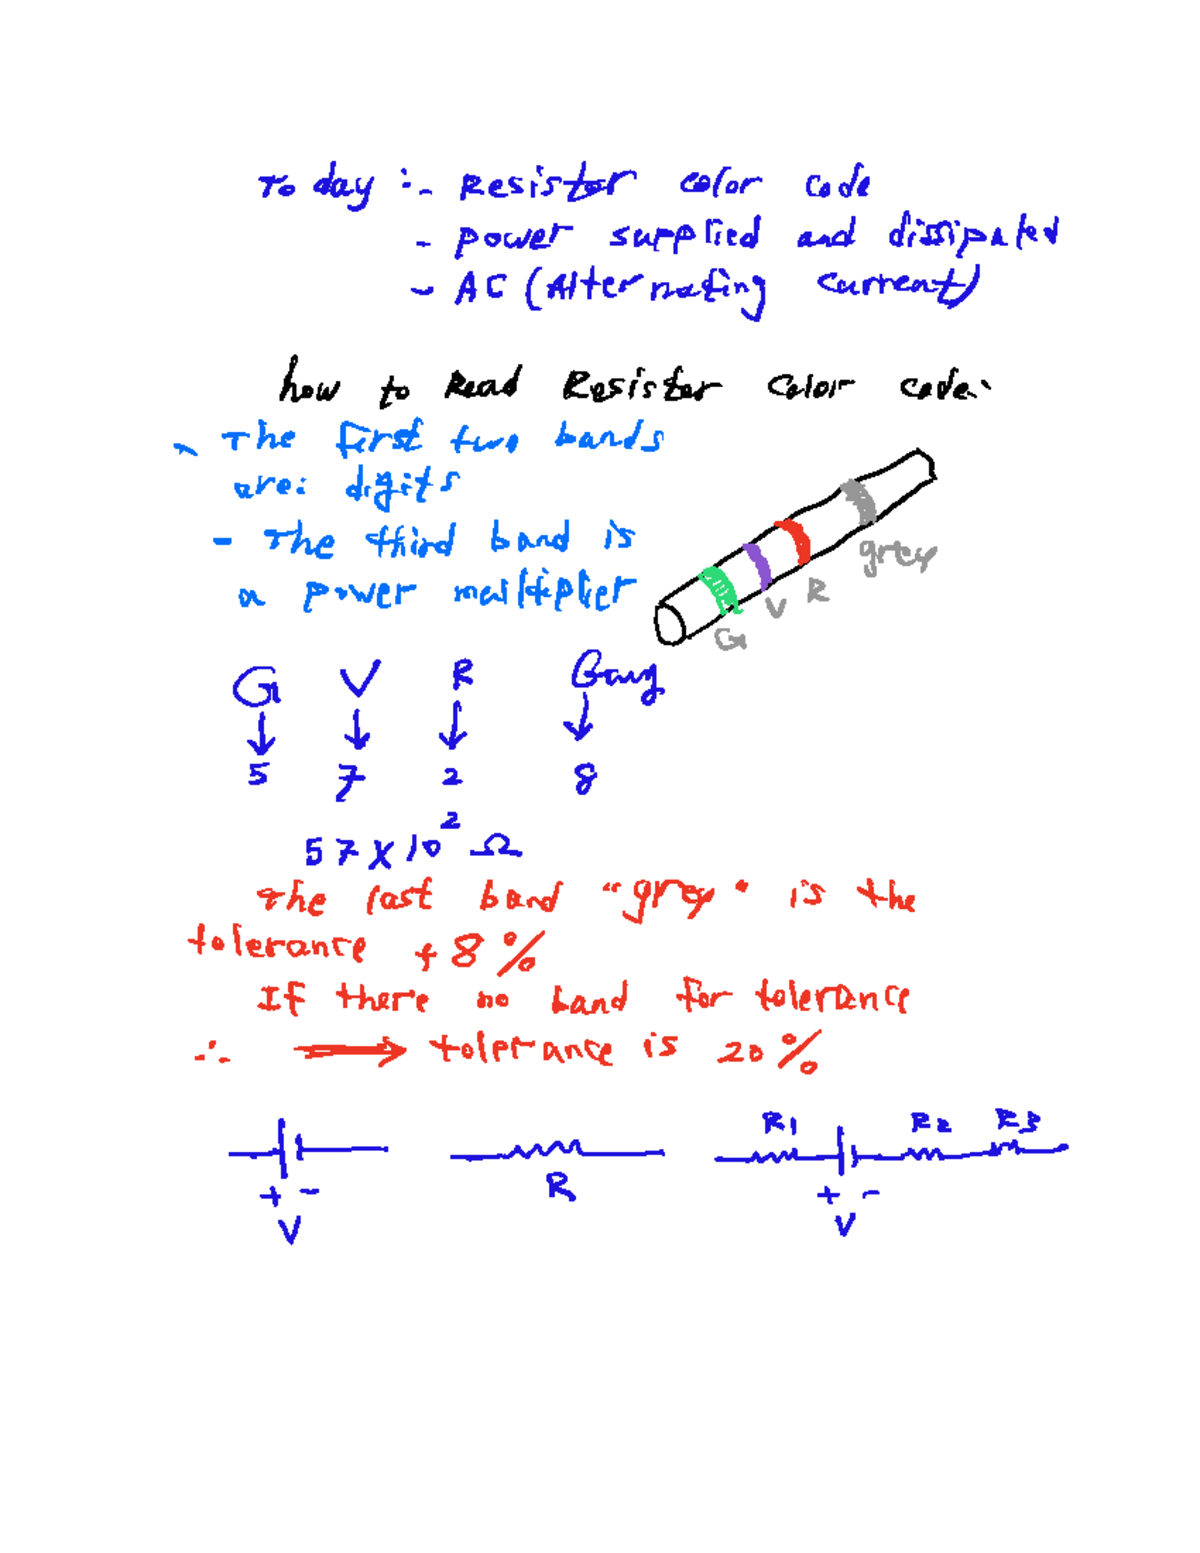 Today :- Resistor color code
- power supplied and dissipated
- AC (Alternating current)
how to Read Resistor color code:
- The first two bands
are: digits
- The third band is
a power multiplier
grey
R
V
G
G V R Gray
5 7 2 8
57 x 10² Ω
The last band "grey" is the
tolerance + 8%
If there no band for tolerance
∴ ⟹ tolerance is 20%
R1 R2 R3
+ - R + -
V V